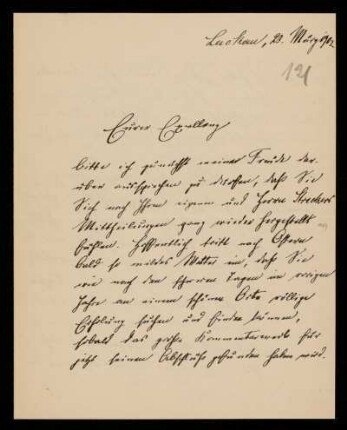 Luckau, 23. März 1902
121
Eurer Excellenz
bitte ich zunächst meiner Freude dar-
über aussprechen zu dürfen, daß Sie
Sich nach Ihren eigenen und Herrn Streckers
Mittheilungen ganz wieder hergestellt
fühlen. Hoffentlich tritt nach Ostern
bald so mildes Wetter ein, daß Sie
wie nach den schweren Tagen im vorigen
Jahre an einem schönen Orte völlige
Erholung suchen und finden können,
sobald das große Kommentarwerk für
jetzt seinen Abschluß gefunden haben wird.